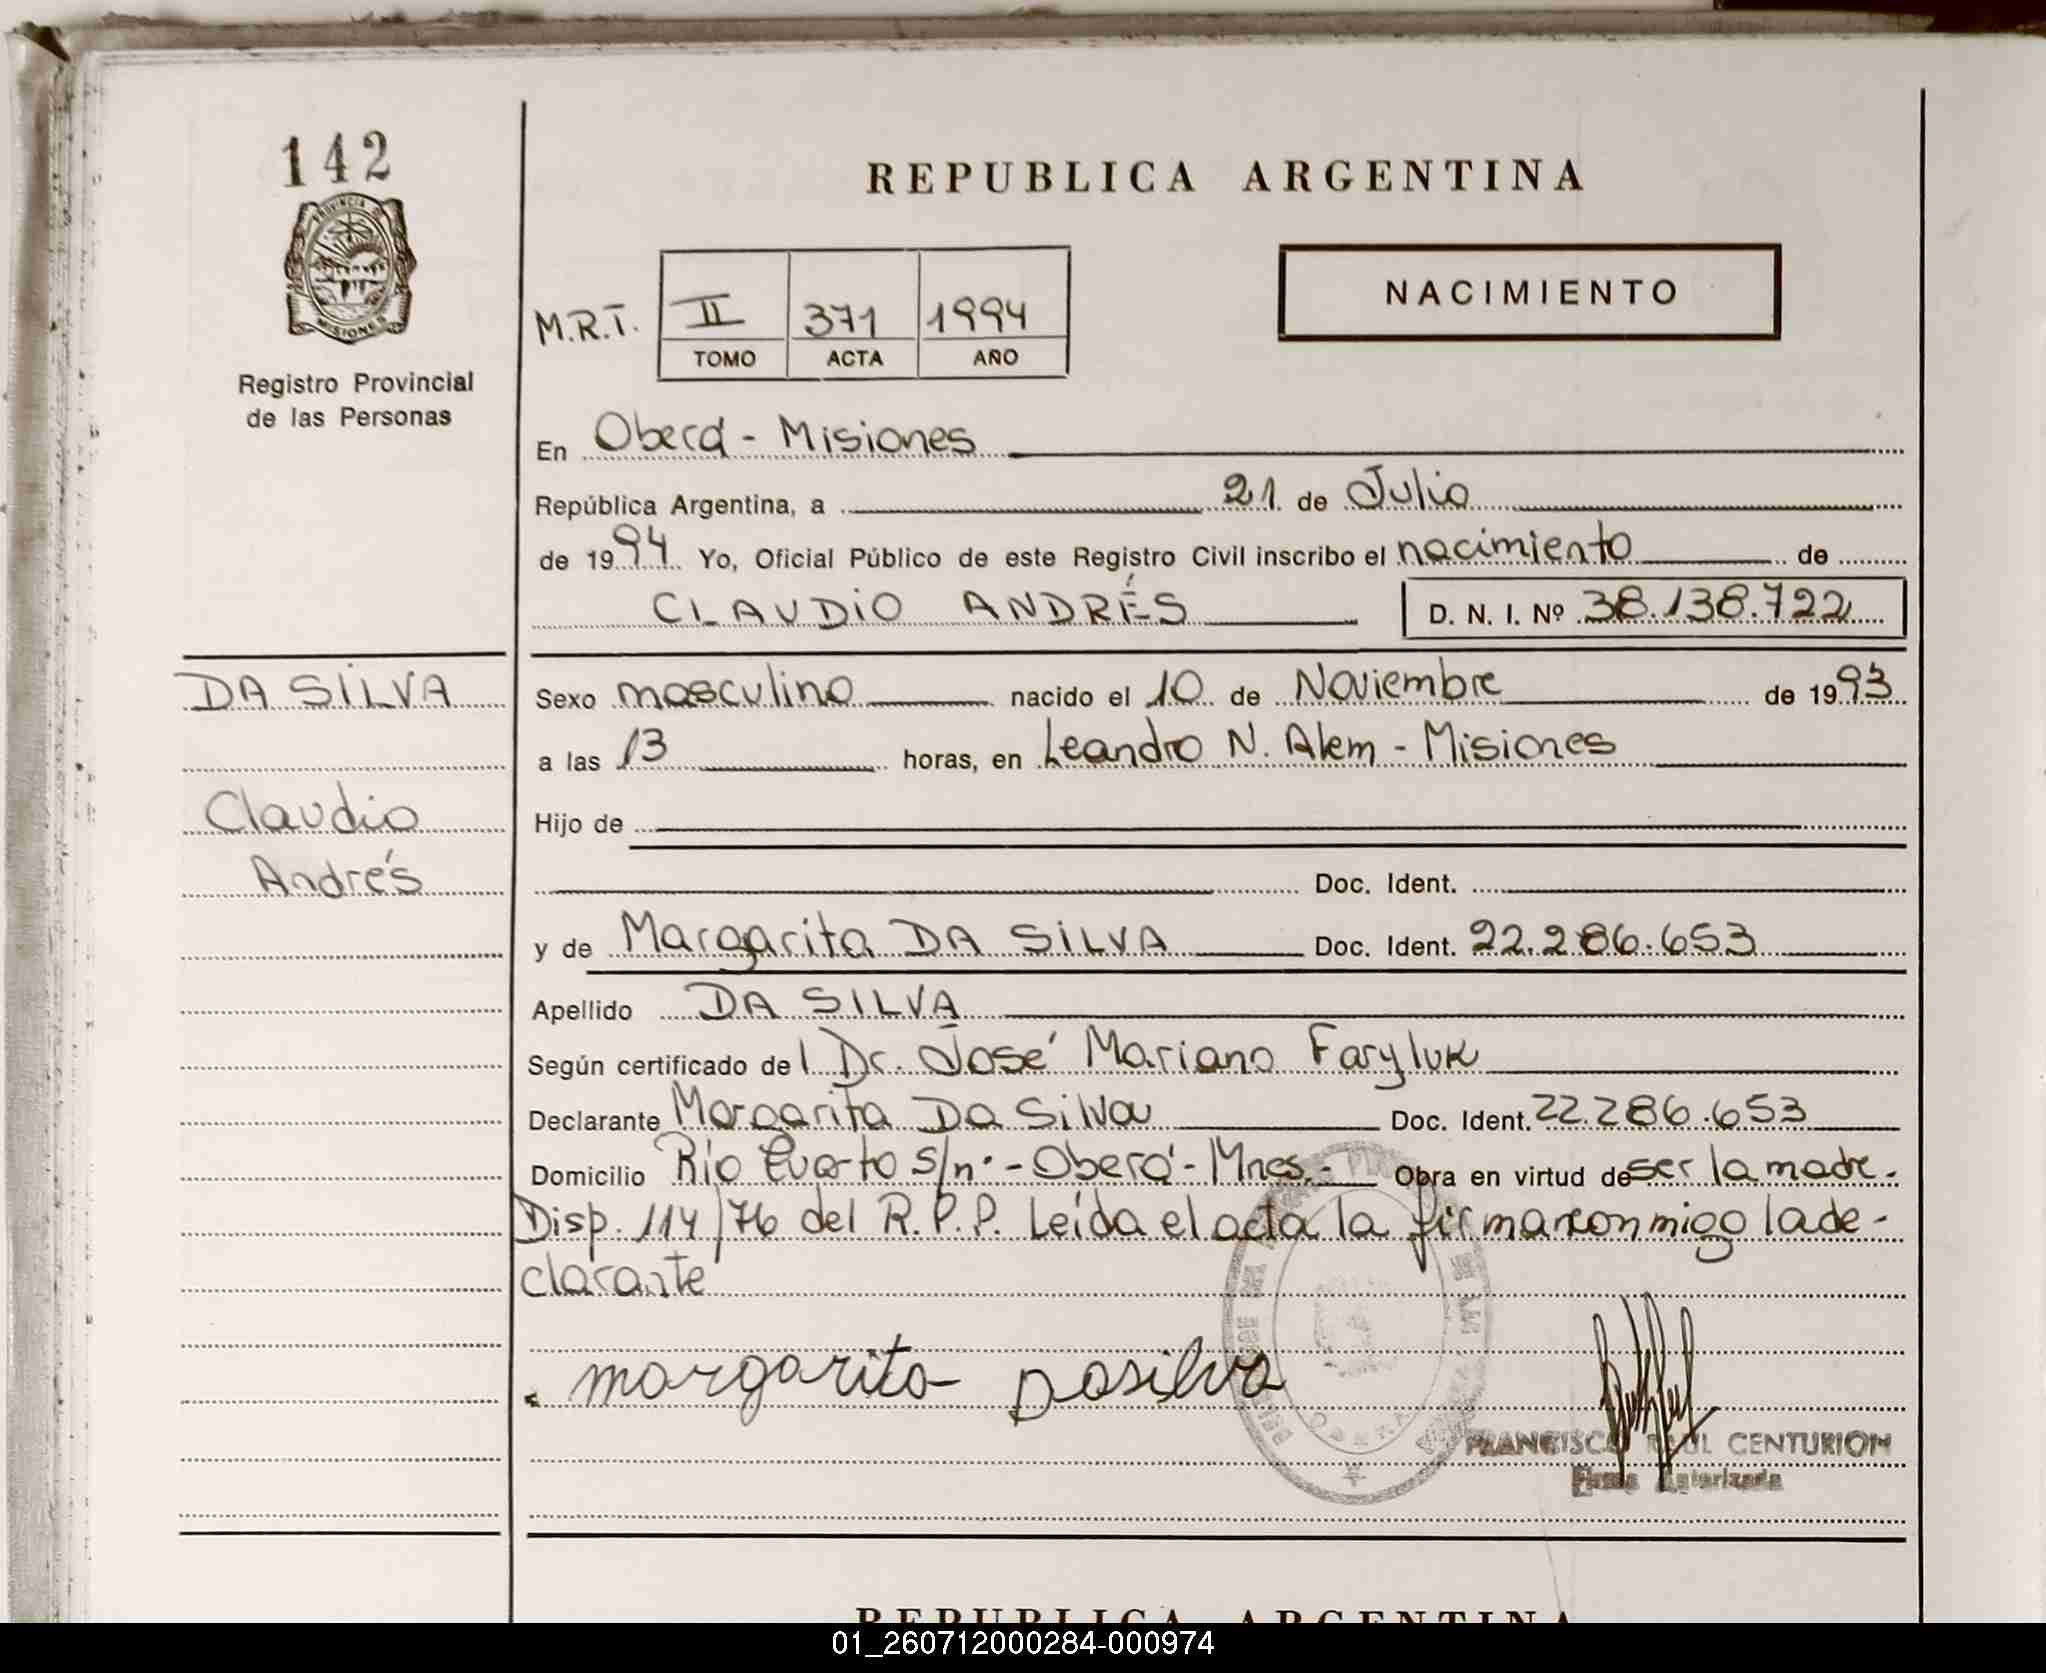 142
PROVINCIA DE
MISIONES
Registro Provincial
de las Personas
REPUBLICA ARGENTINA
NACIMIENTO
M.R.T. II 371 1994
TOMO ACTA AÑO
En Oberá - Misiones
República Argentina, a 21 de Julio
de 1994 Yo, Oficial Público de este Registro Civil inscribo el nacimiento de
CLAUDIO ANDRÉS D. N. I. Nº 38.138.722
DA SILVA
Claudio
Andrés
Sexo masculino nacido el 10 de Noviembre de 1993
a las 13 horas, en Leandro N. Alem - Misiones
Hijo de
Doc. Ident.
y de Margarita DA SILVA Doc. Ident. 22.286.653
Apellido DA SILVA
Según certificado del Dr. José Mariano Faryluk
Declarante Margarita Da Silva Doc. Ident. 22.286.653
Domicilio Río Cuarto s/nº - Oberá - Mnes.- Obra en virtud de ser la madre.
Disp. 114/76 del R.P.P. Leída el acta la firma conmigo la de-
clarante
margarita Dasilva
OBERA
FRANCISCO RAUL CENTURION
Firma Autorizada
REPUBLICA ARGENTINA
01_260712000284-000974